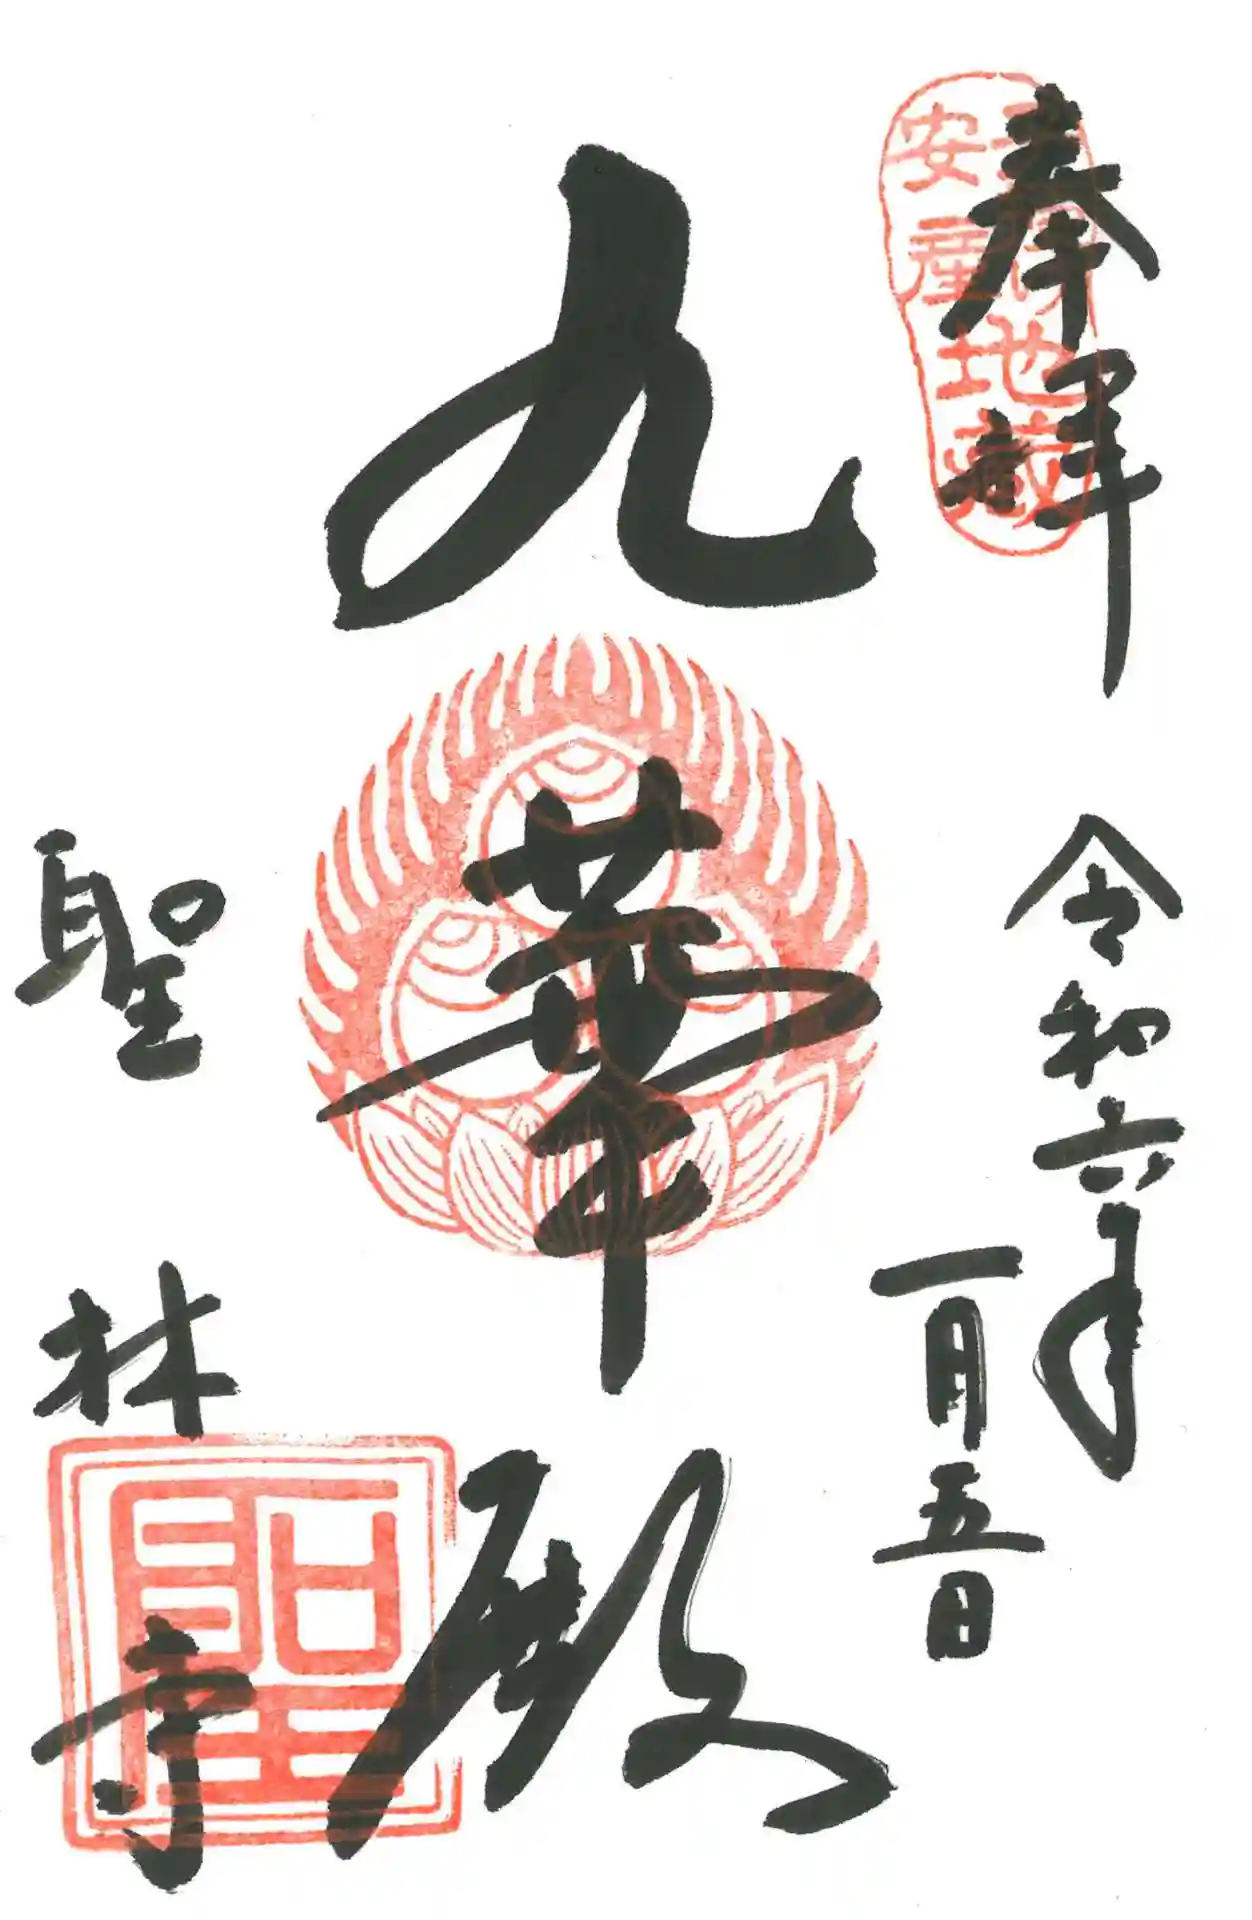 奉拝
令和六年
一月五日
九華殿
聖林寺
安産
地蔵
聖